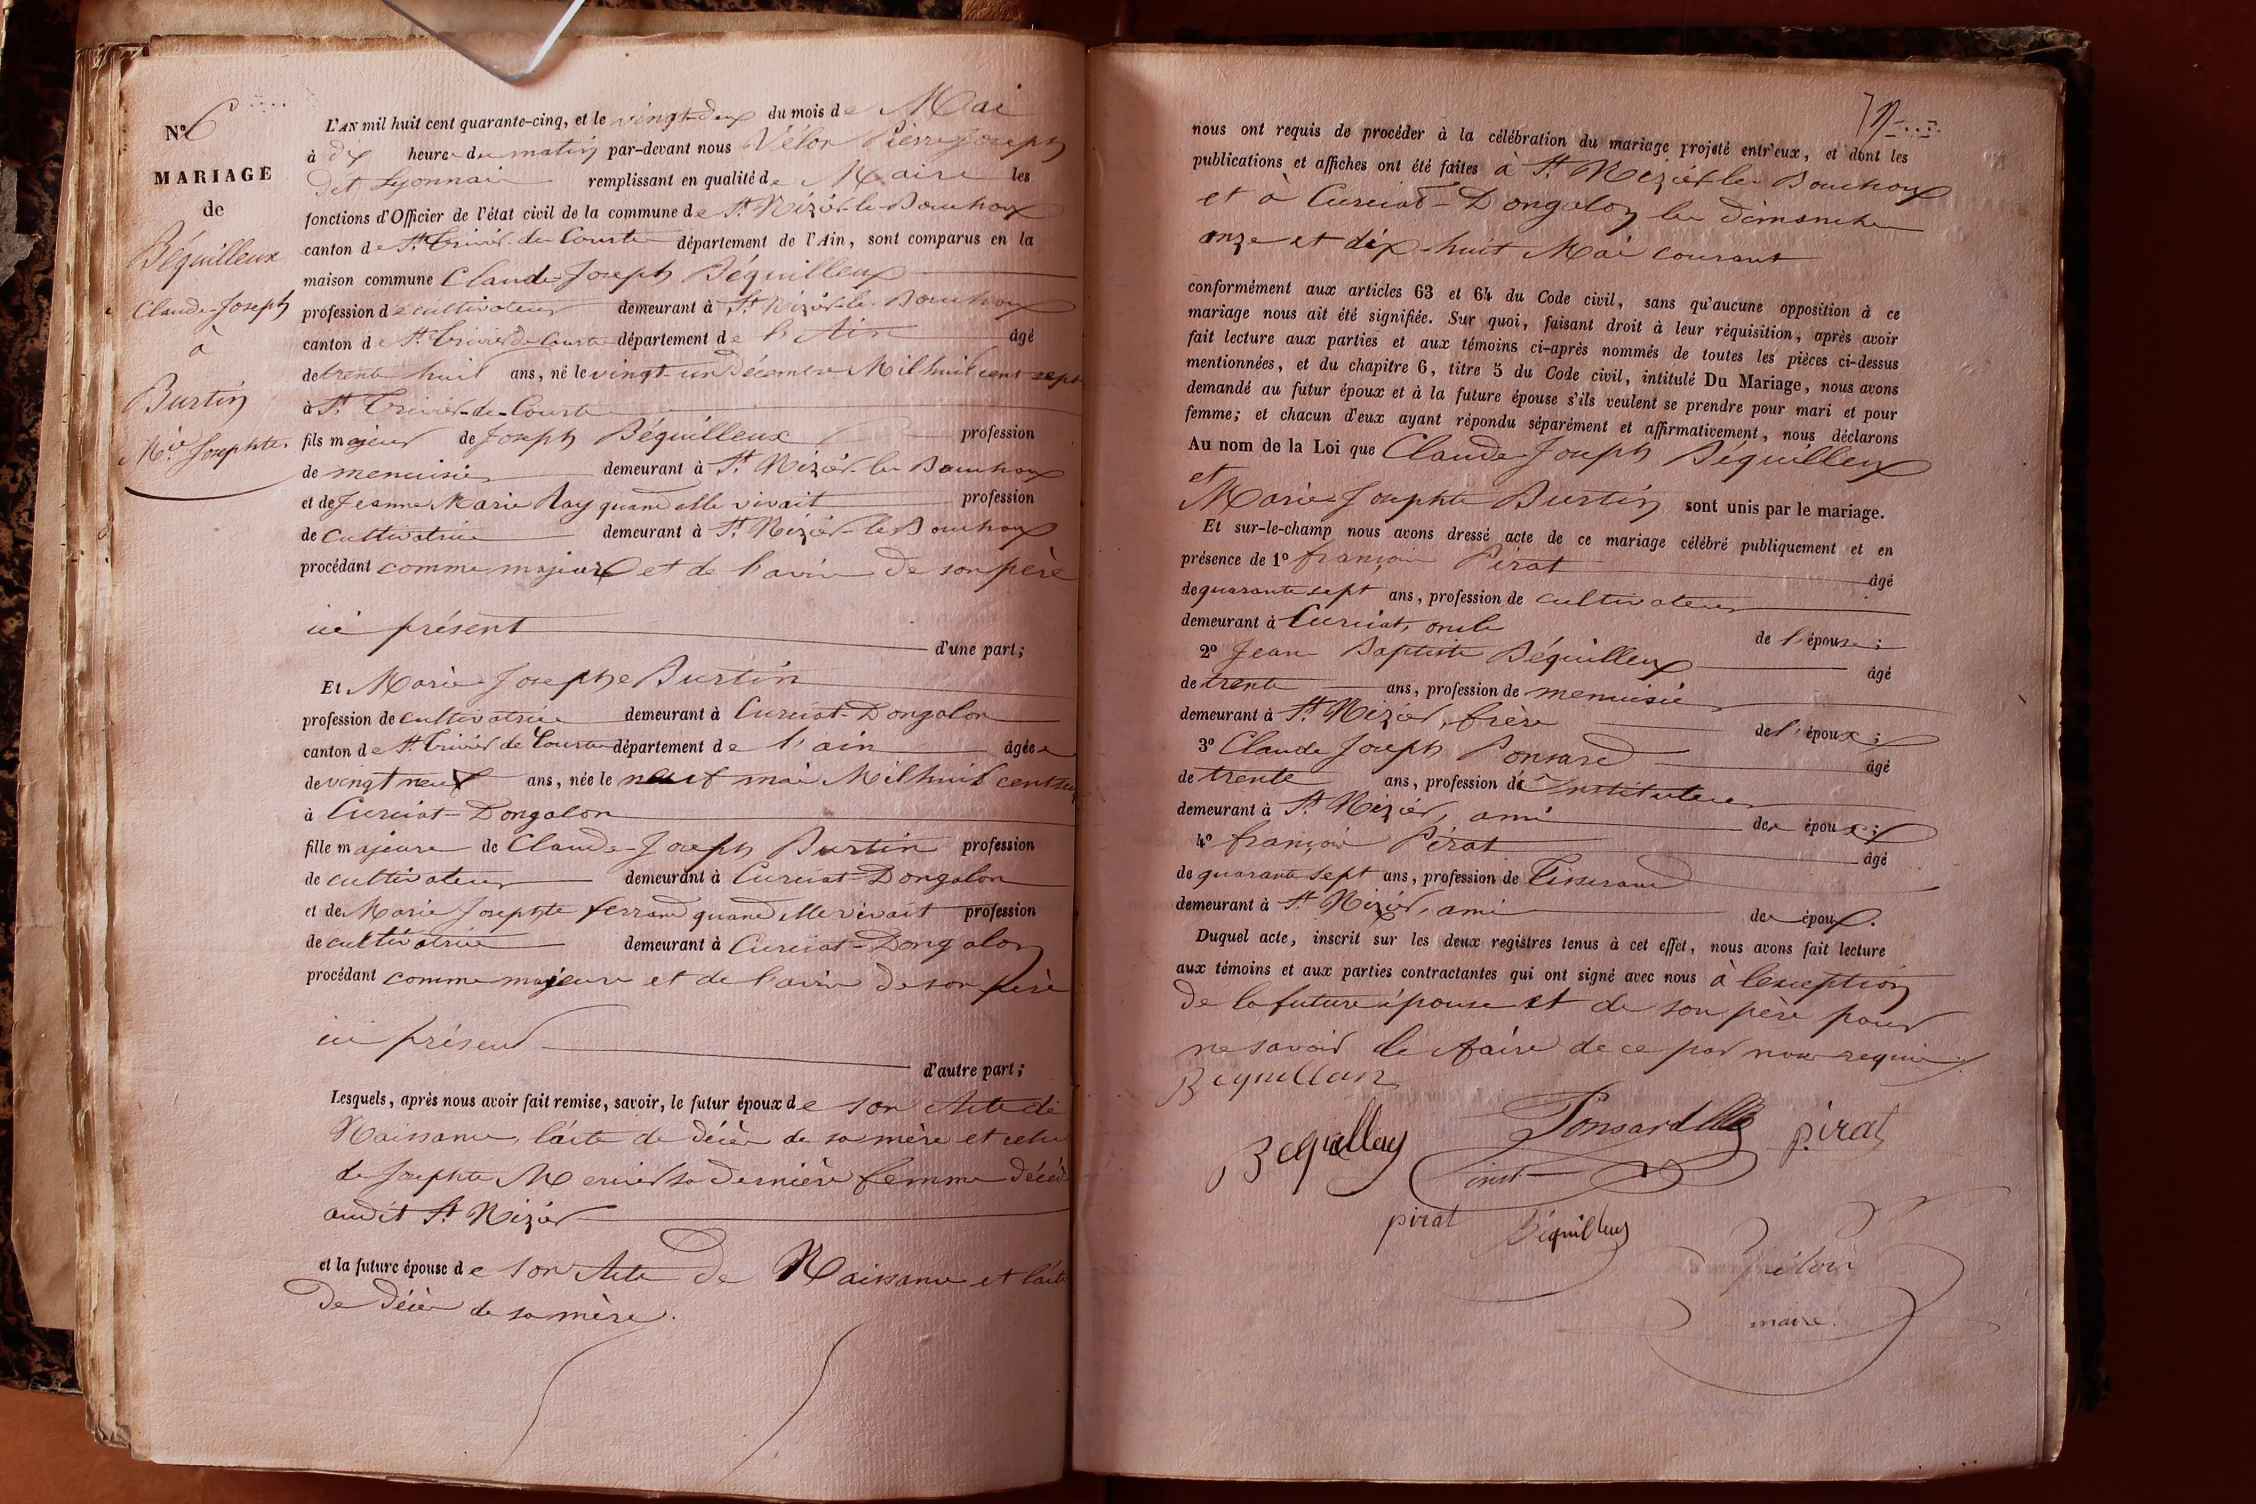 Nº 6
MARIAGE
de
Béquilleux
Claude-Joseph
à
Burtin
Mie Josephte.
L'AN mil huit cent quarante-cinq, et le vingt-deux du mois de Mai
à dix heures du matin par-devant nous Vélon Pierre Joseph
dit Lyonnais remplissant en qualité de Maire les
fonctions d'Officier de l'état civil de la commune de St Nizier-le-Bouchoux
canton de St Trivier-de-Courtes département de l'Ain, sont comparus en la
maison commune Claude-Joseph Béquilleux
profession de cultivateur demeurant à St Nizier-le-Bouchoux
canton de St Trivier de Courtes département de l'Ain âgé
de trente huit ans, né le vingt-un Décembre Mil huit cent sept
à St Trivier-de-Courtes
fils majeur de Joseph Béquilleux profession
de menuisier demeurant à St Nizier-le-Bouchoux
et de Jeanne Marie Ray quand elle vivait profession
de cultivatrice demeurant à St Nizier-le-Bouchoux
procédant comme majeur et de l'avis de son père
ici présent
d'une part;
Et Marie Josephe Burtin
profession de cultivatrice demeurant à Curciat-Dongalon
canton de St Trivier de Courtes département de l'ain âgée
de vingt neuf ans, née le neuf mai Mil huit cent
à Curciat-Dongalon
fille majeure de Claude-Joseph Burtin profession
de cultivateur demeurant à Curciat-Dongalon
et de Marie Josephte ferrand quand elle vivait profession
de cultivatrice demeurant à Curciat-Dongalon
procédant comme majeure et de l'avis de son père
ici présent
d'autre part;
Lesquels, après nous avoir fait remise, savoir, le futur époux de son Acte de
Naissance, l'acte de décès de sa mère et celui
de Josephte Mercier sa dernière femme décédée
audit St Nizier
et la future épouse de son Acte de Naissance et l'acte
de décès de sa mère.
nous ont requis de procéder à la célébration du mariage projeté entr'eux, et dont les
publications et affiches ont été faites à St Nizier-le-Bouchoux
et à Curciat-Dongalon les dimanches
onze et dix-huit Mai courant
conformément aux articles 63 et 64 du Code civil, sans qu'aucune opposition à ce
mariage nous ait été signifiée. Sur quoi, faisant droit à leur réquisition, après avoir
fait lecture aux parties et aux témoins ci-après nommés de toutes les pièces ci-dessus
mentionnées, et du chapitre 6, titre 5 du Code civil, intitulé Du Mariage, nous avons
demandé au futur époux et à la future épouse s'ils veulent se prendre pour mari et pour
femme; et chacun d'eux ayant répondu séparément et affirmativement, nous déclarons
Au nom de la Loi que Claude-Joseph Béquilleux
et
Marie-Josephte Burtin sont unis par le mariage.
Et sur-le-champ nous avons dressé acte de ce mariage célébré publiquement et en
présence de 1º françois Pirat âgé
de quarante sept ans, profession de cultivateur
demeurant à Curciat, oncle de l'épouse;
2º Jean Baptiste Béquilleux âgé
de trente ans, profession de menuisier
demeurant à St Nizier, frère de l'époux;
3º Claude Joseph Ponsard âgé
de trente ans, profession d'Instituteur
demeurant à St Nizier, ami des époux;
4º françois Pirat âgé
de quarante sept ans, profession de Tisserand
demeurant à St Nizier, ami des époux.
Duquel acte, inscrit sur les deux registres tenus à cet effet, nous avons fait lecture
aux témoins et aux parties contractantes qui ont signé avec nous à l'exception
de la future épouse et de son père pour
ne savoir le faire de ce par nous requis.
Bequillaux
Bequelleus Ponsard pirat
inst
pirat Béquilleux
Vélon
maire